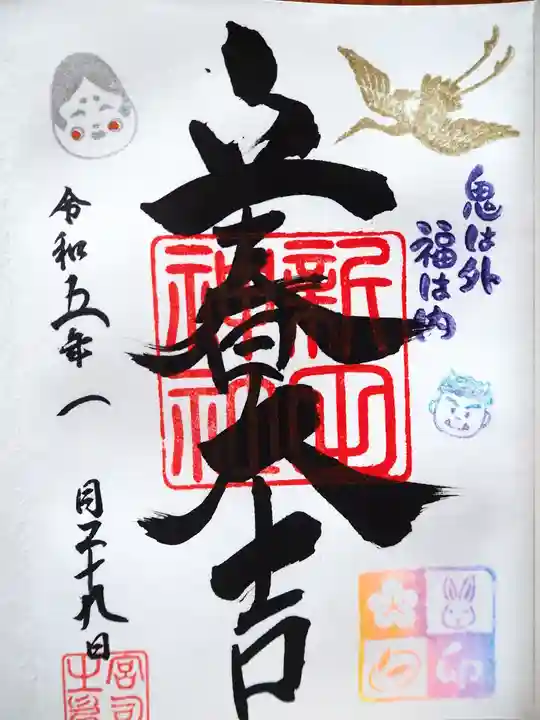 鬼は外
福は内
立春大吉
新田神社
令和五年一月二十九日
宮司之印
卯